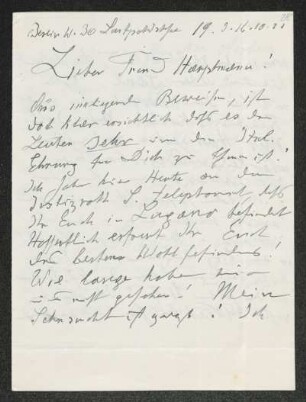 Berlin W. 30 19. 3 - 16.10.21
Lieber Freund Hauptmann!
Beweisen, ist
doch klar ersichtlich daß es den
Leuten sehr um den
Ehrung für Dich zu thun ist!
Ich habe hier Heute an den
Justizrath S. Telephonirt, daß
Ihr Euch in Lugano befindet
Hoffentlich erfreut Ihr Euch
des besten Wohlbefindens!
Wie lange haben wir
uns nicht gesehen! Meine
Sehnsucht ist ! Ich